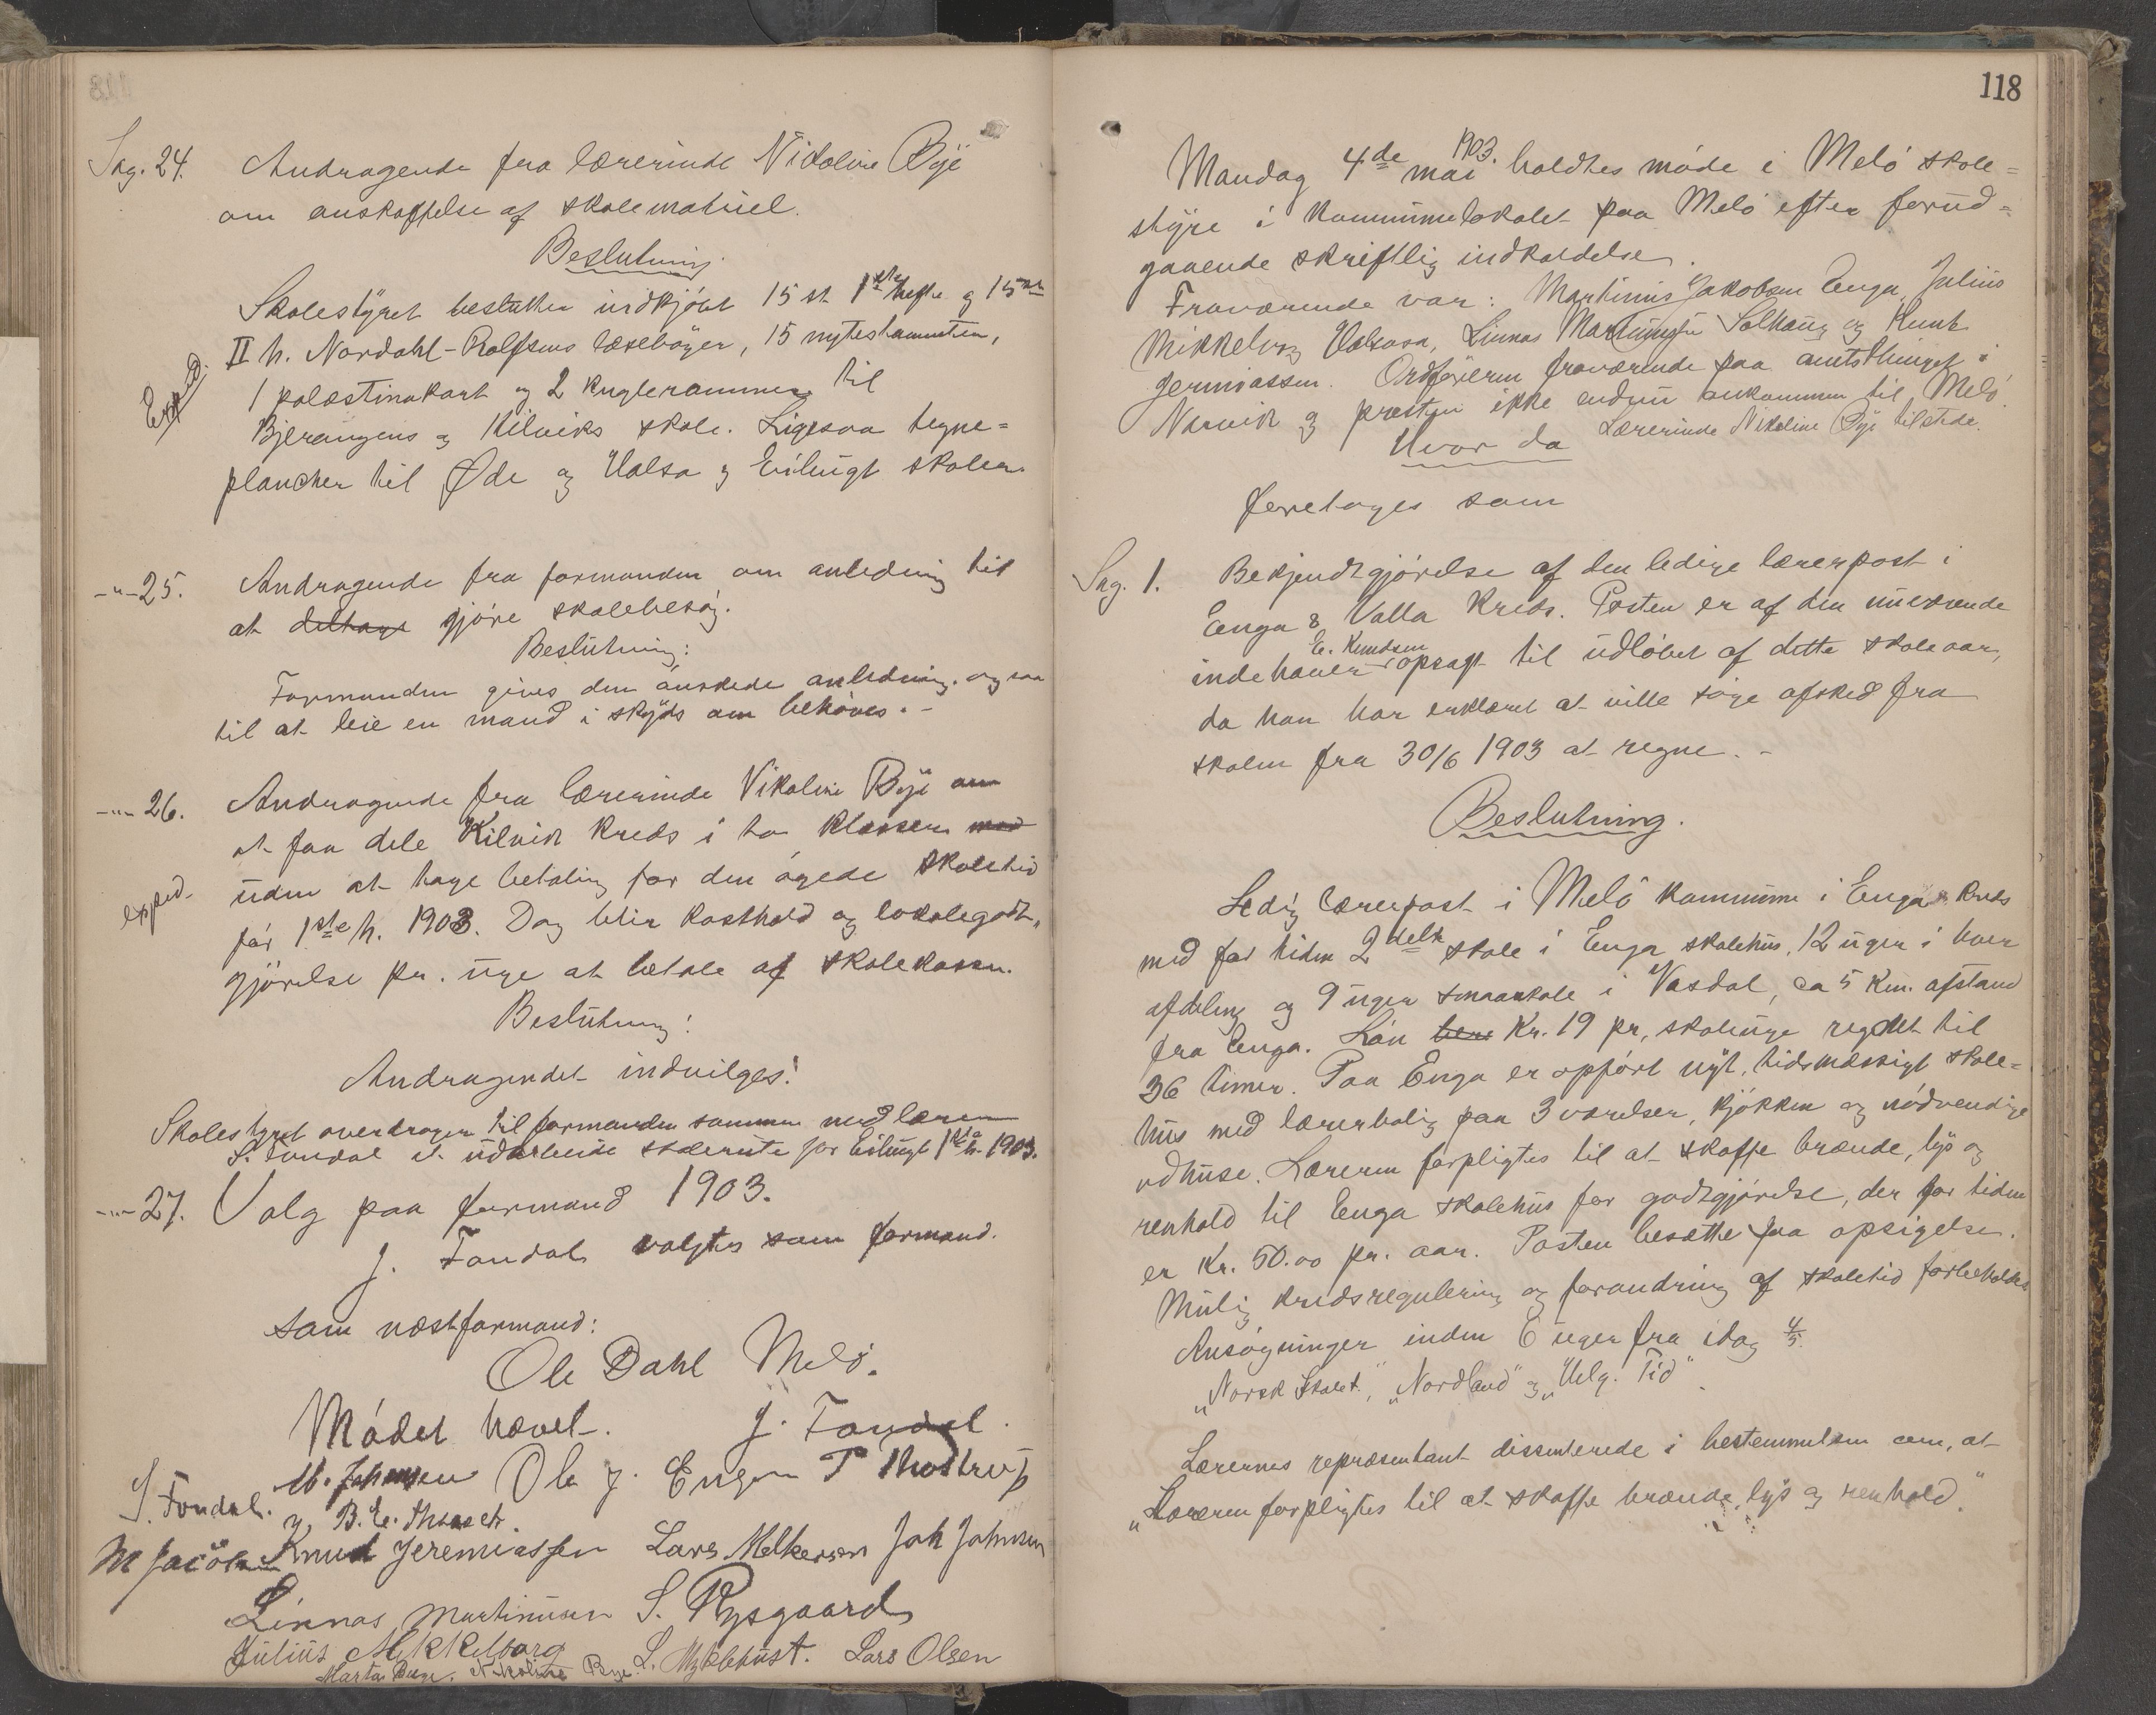 Sag. 24. Andragende fra lærerinde Nikoline Bye
om anskaffelse af skolemateriel.
Beslutning
Skolestyret beslutter indkjøbt 15 st 1ste hefte og 15 st
II h. Nordahl-Rolfsens læsebøger, 15 nytestamenten,
Exped. 1 palæstinakart og 2 kuglerammer til
Bjerangens og Kilviks skole. Ligesaa tegne=
plancher til Øde og Halsa og Eilingt skoler.
-"-25. Andragende fra formanden om anledning til
at deltage gjøre skolebesøg.
Beslutning:
Formanden gives den ønskede anledning, og saa
til at leie en mand i skyds om behøves.-
-"-26. Andragende fra lærerinde Nikoline Bye om
at faa dele Kilvik kreds i to klasser med
exped. uden at tage betaling for den øgede skoletid
før 1ste h. 1903. Dog blir kosthold og lokalegodt=
gjørelse pr. uge at betale af skolekassen.
Beslutning:
Andragendet indvilges!
Skolestyret overdrager til formanden sammen med læreren
S. Fondal at udarbeide skolerute for Eilingt 1ste h. 1903.
-"-27. Valg paa formand 1903.
J. Fondal valgtes som formand.
som næstformand:
Ole Dahl Melø.
Mødet hævet. J. Fondal.
S. Fondal. M. Johansen Ole J. Engen P Thostrup
B. E.
M Jacobsen Knud Jeremiassen Lars Melkersen Joh Johnsen
Linnas Martinusen S. Rysgaard
Julius Mikkelborg L. Myklebust. Lars Olsen
Marta Nikoline Bye.
118
Mandag 4de mai 1903. holdtes møde i Melø skole=
styre i kommunelokalet paa Melø efter forud=
gaaende skriftlig indkaldelse.
Fraværende var: Martinus Jakobsen Enga, Julius
Mikkelborg Valsosa, Linnas Martinusen Solhaug og Knut
Jermiassen. Ordføreren fraværende paa amtsthinget i
Narvik og presten ikke endnu ankommen til Melø.
Hvor da Lærerinde Nikoline Bye tilstede.
foretages som
Sag. 1. Bekjendtgjørelse af den ledige lærerpost i
Enga & Valla kreds. Posten er af den nuværende
indehaver E. Knudsen opsagt til udløbet af dette skoleaar,
da han har erklæret at ville søge afsked fra
skolen fra 30/6 1903 at regne.-
Beslutning.
Ledig lærerpost i Melø kommune i Enga kreds
med for tiden 2delt skole i Enga skolehus, 12 uger i hver
afdeling og 9 uger smaaskole i Vasdal, ca 5 km. afstand
fra Enga. Løn Kr. 19 pr. skoleuge regnet til
36 timer. Paa Enga er opført nyt, tidsmæssigt skole=
hus med lærerbolig paa 3 værelser, kjøkken og nødvendige
udhuse. Læreren forpligtes til at skaffe brænde, lys og
renhold til Enga skolehus for godtgjørelse, der for tiden
er kr. 50.00 pr. aar. Posten besættes paa opsigelse.
Mulig kredsregulering og forandring af skoletid forbeholdes
Ansøgninger inden 6 uger fra idag 4/5.
„Norsk Skolet.", „Nordland" og „Helg. Tid".
Lærernes repræsentant dissenterede i bestemmelsen om, at
„Læreren forpligtes til at skaffe brænde, lys og renhold".